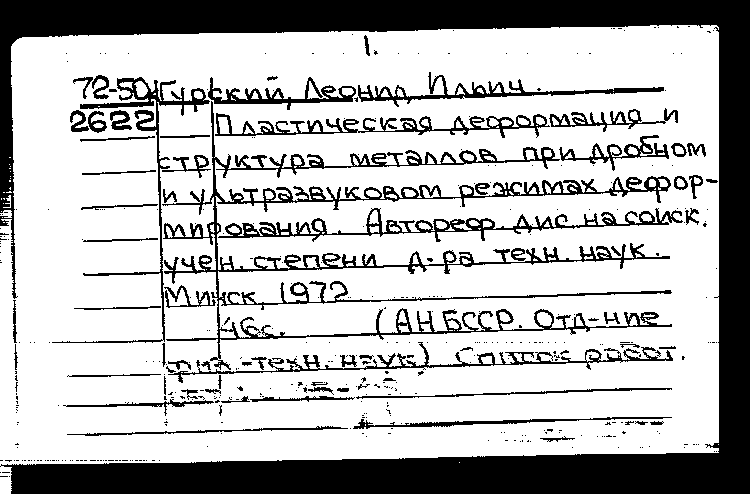 1.
72-50 Гурский, Леонид Ильич.
2622 Пластическая деформация и
структура металлов при дробном
и ультразвуковом режимах дефор-
мирования. Автореф. дис. на соиск.
учен. степени д-ра техн. наук.
Минск, 1972
46с. (АН БССР. Отд-ние
физ.-техн. наук) Список работ.